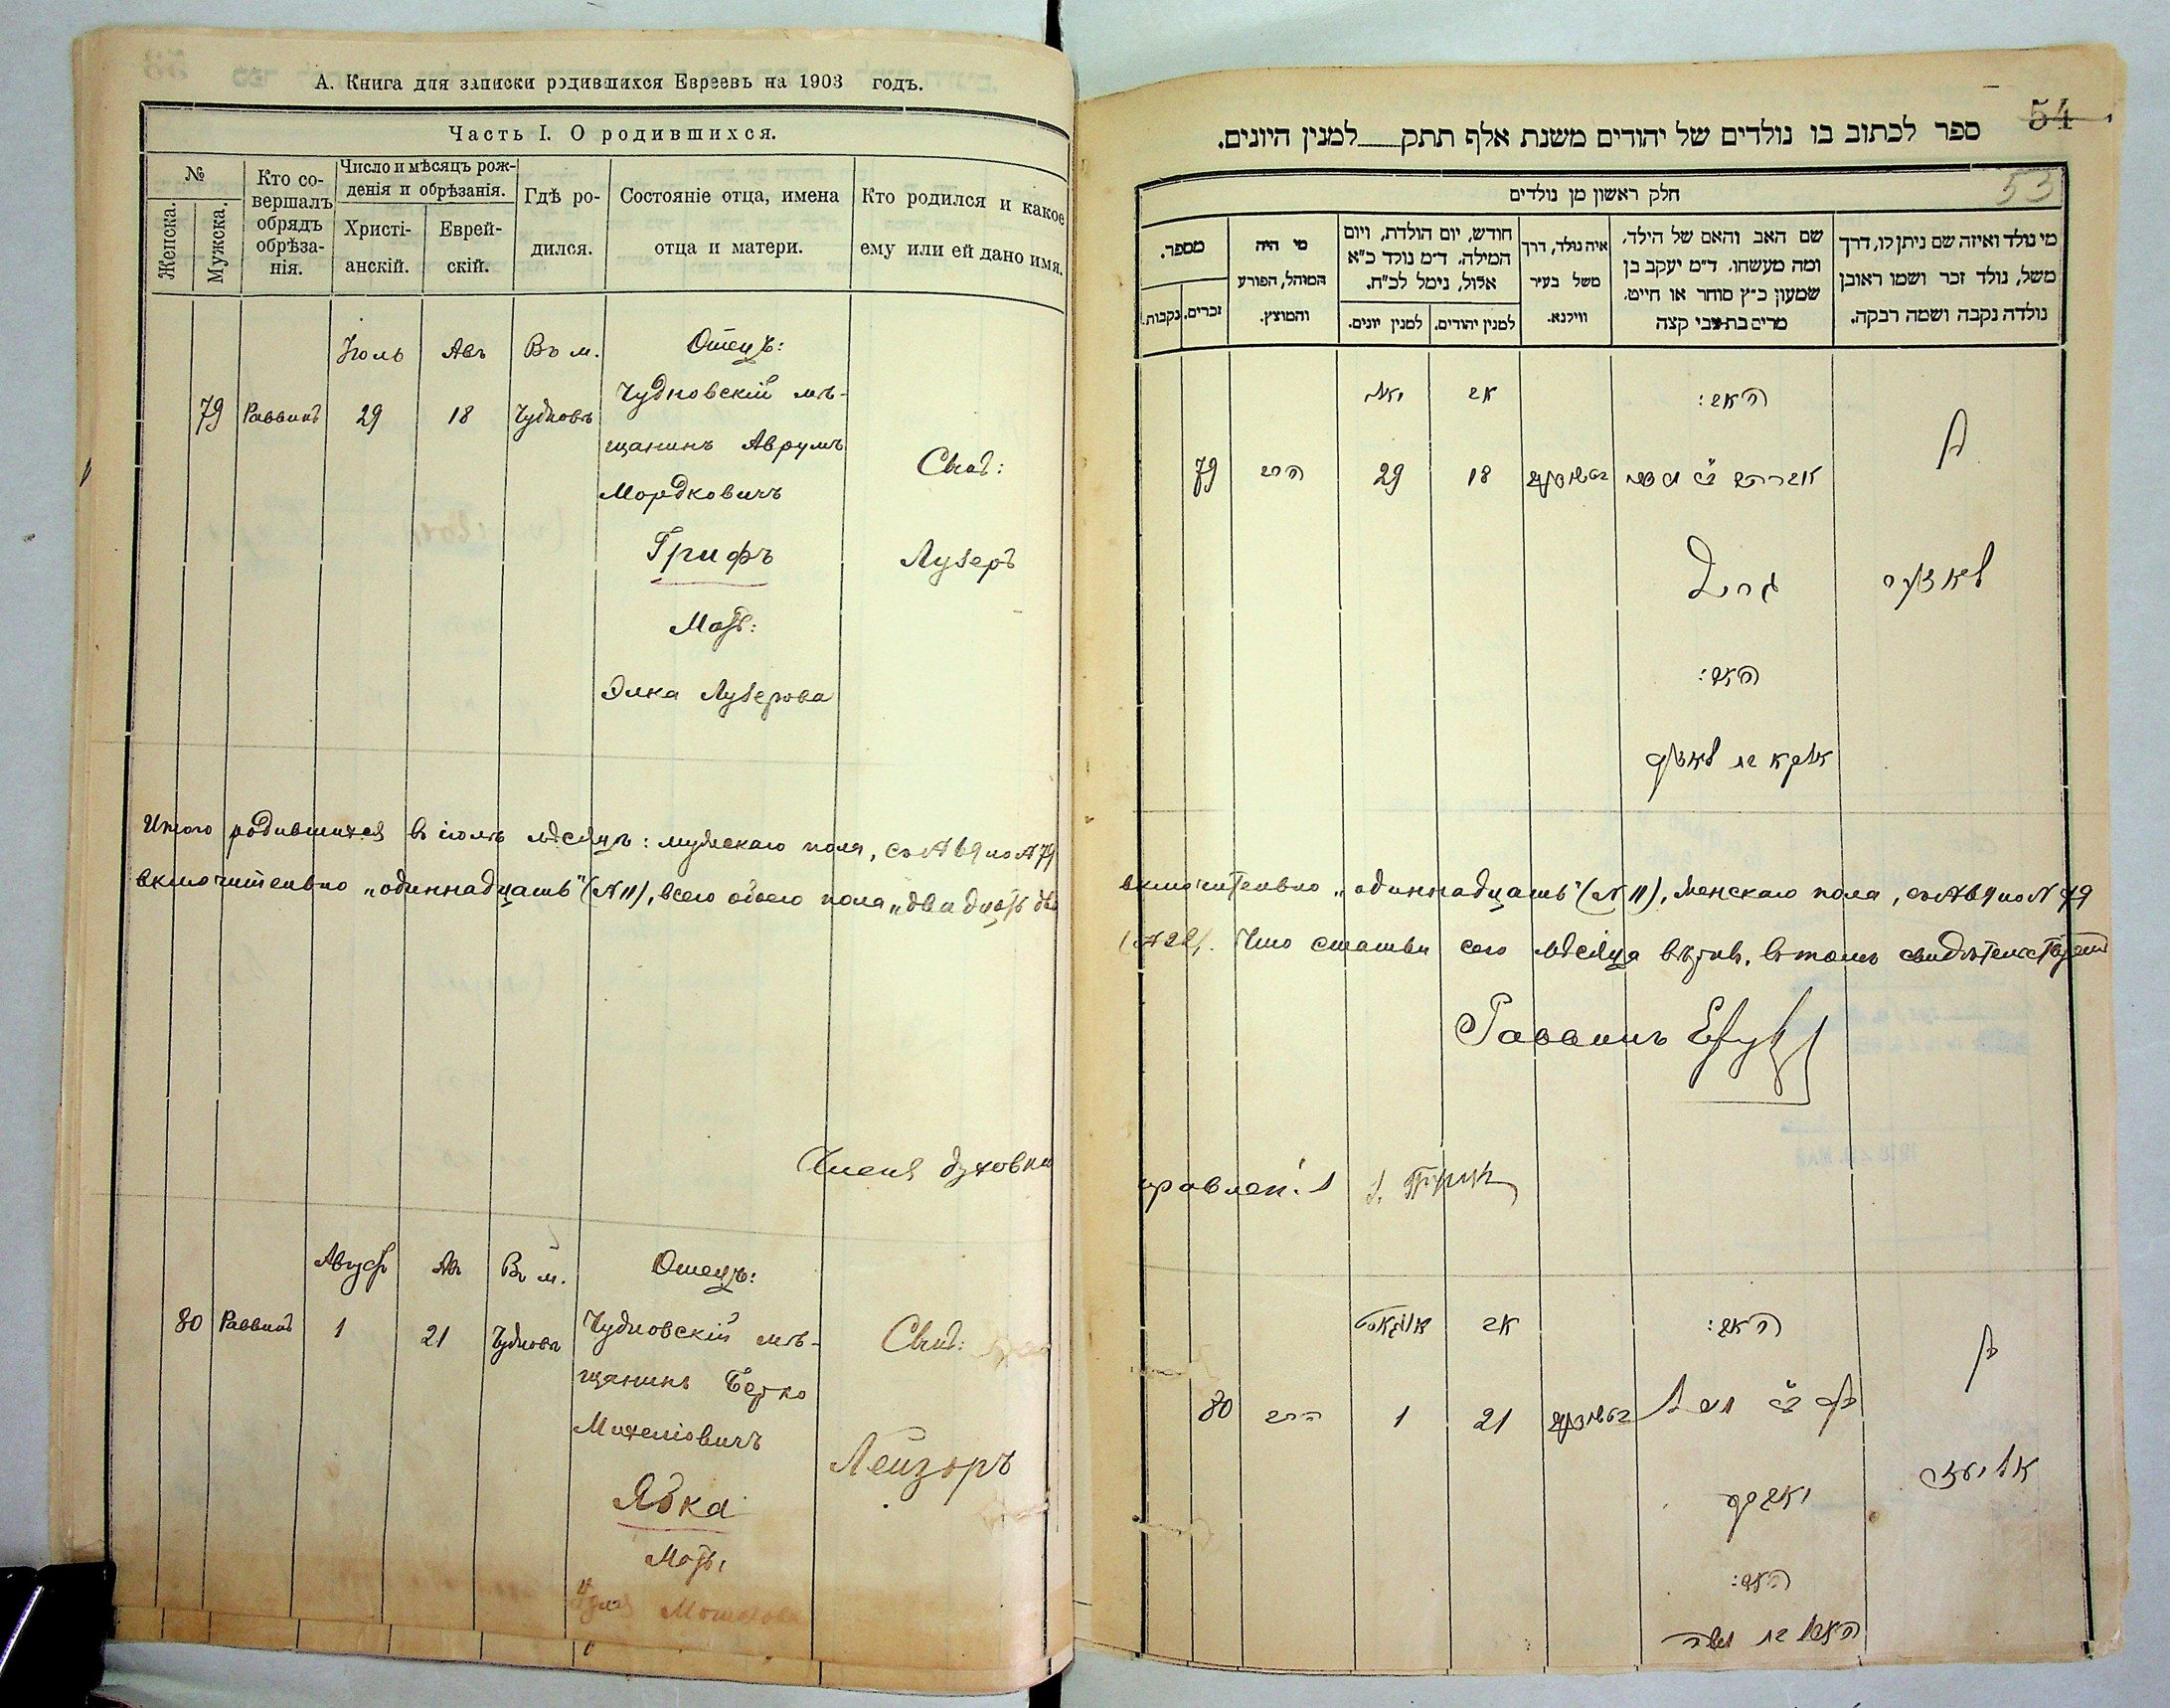 А. Книга для записки родившихся Евреевъ на 1903 годъ.
Часть I. О родившихся.
№
Женска.
Мужска.
Кто со-
вершалъ
обрядъ
обрѣза-
нія.
Число и мѣсяцъ рож-
денія и обрѣзанія.
Христі-
анскій.
Еврей-
скій.
Гдѣ ро-
дился.
Состояніе отца, имена
отца и матери.
Кто родился и какое
ему или ей дано имя.
Іюль Авъ Въ м. Отецъ:
79 Раввинъ 29 18 Чудновъ
Чудновскій мѣ-
щанинъ Аврумъ
Мордковичъ
Грифъ
Мать:
Элка Лузерова
Сынъ:
Лузеръ
Итого родившихся въ іюль мѣсяцъ: мужскаго пола, съ № 69 по № 79
включительно „одиннадцать" (№ 11), всего обоего пола „двадцать два
Члены духовн
Августъ Авъ Въ м. Отецъ:
80 Раввинъ 1 21 Чудновъ
Чудновскій мѣ-
щанинъ Берко
Михелiовичъ
Ябка
Мать:
Мошкова
Сынъ:
Лейзоръ
54
ספר לכתוב בו נולדים של יהודים משנת אלף תתק למנין היונים.
53
חלק ראשון מן נולדים
מי נולד ואיזה שם ניתן לו, דרך
משל, נולד זכר ושמו ראובן
נולדה נקבה ושמה רבקה.
שם האב והאם של הילד,
ומה מעשהו. ד״מ יעקב בן
שמעון כ״ץ סוחר או חייט.
מרים בת צבי קצה
איה נולד, דרך
משל בעיר
ווילנא.
חודש, יום הולדת, ויום
המילה. ד״מ נולד כ״א
אלול, נימל לכ״ח.
למנין יהודים.
למנין יונים.
מי היה
המוהל, הפורע
והמוצץ.
מספר.
זכרים.
נקבות.
האב:
אב
יולי
79 הרב 29 18
בן
גריף
לאזער
האם:
включительно „одиннадцать" (№ 11), женскаго пола, съ № 69 по № 79
(№ 22). Что статьи сего мѣсяца вѣрны, въ томъ свидѣтельствуетъ
Раввинъ
правленія
האב:
אב
אויגוסט
80 הרב 1 21
בן
יאבקע
האם: